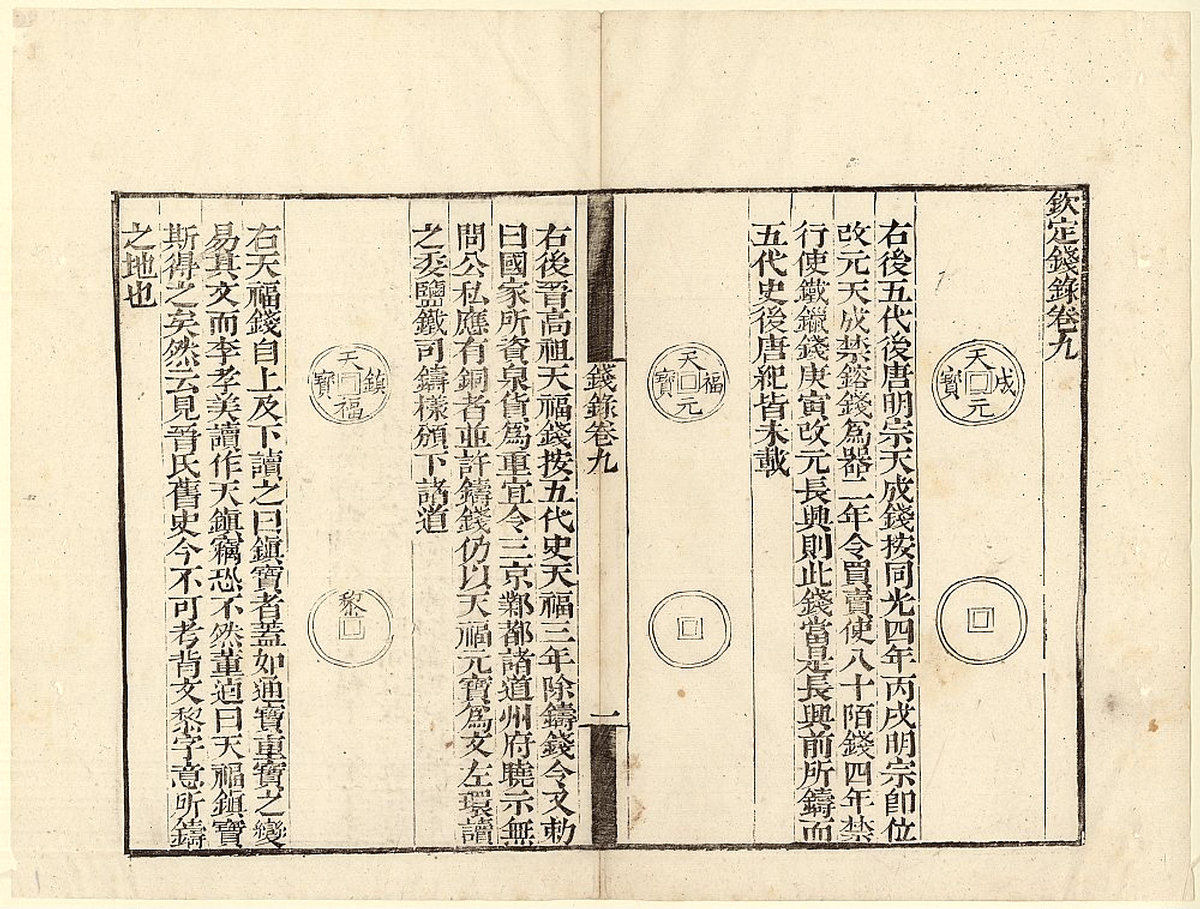 欽定錢錄卷九
天成元寶
右後五代後唐明宗天成錢按同光四年丙戌明宗卽位
改元天成禁鎔錢爲器二年令買賣使八十陌錢四年禁
行使鐵鑞錢庚寅改元長興則此錢當是長興前所鑄而
五代史後唐紀皆未載
天福元寶
錢錄卷九
一
右後晉高祖天福錢按五代史天福三年除鑄錢令又勅
曰國家所資泉貨爲重宜令三京鄴都諸道州府曉示無
問公私應有銅者並許鑄錢仍以天福元寶爲文左環讀
之委鹽鐵司鑄樣頒下諸道
天鎮福寶
黎
右天福錢自上及下讀之曰鎮寶者蓋如通寶重寶之變
易其文而李孝美讀作天鎮竊恐不然董逌曰天福鎮寶
斯得之矣然云見晉氏舊史今不可考背文黎字意所鑄
之地也